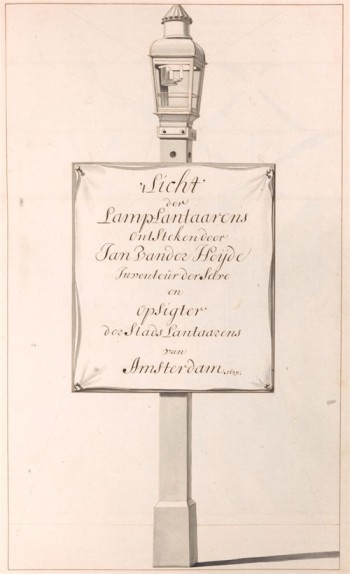 'tLicht
der
LampLantaarens
ontsteken door
Jan Vander Heyde
Inventeur der Selve
en
opsigter
der Stads Lantaarens
van
Amsterdam